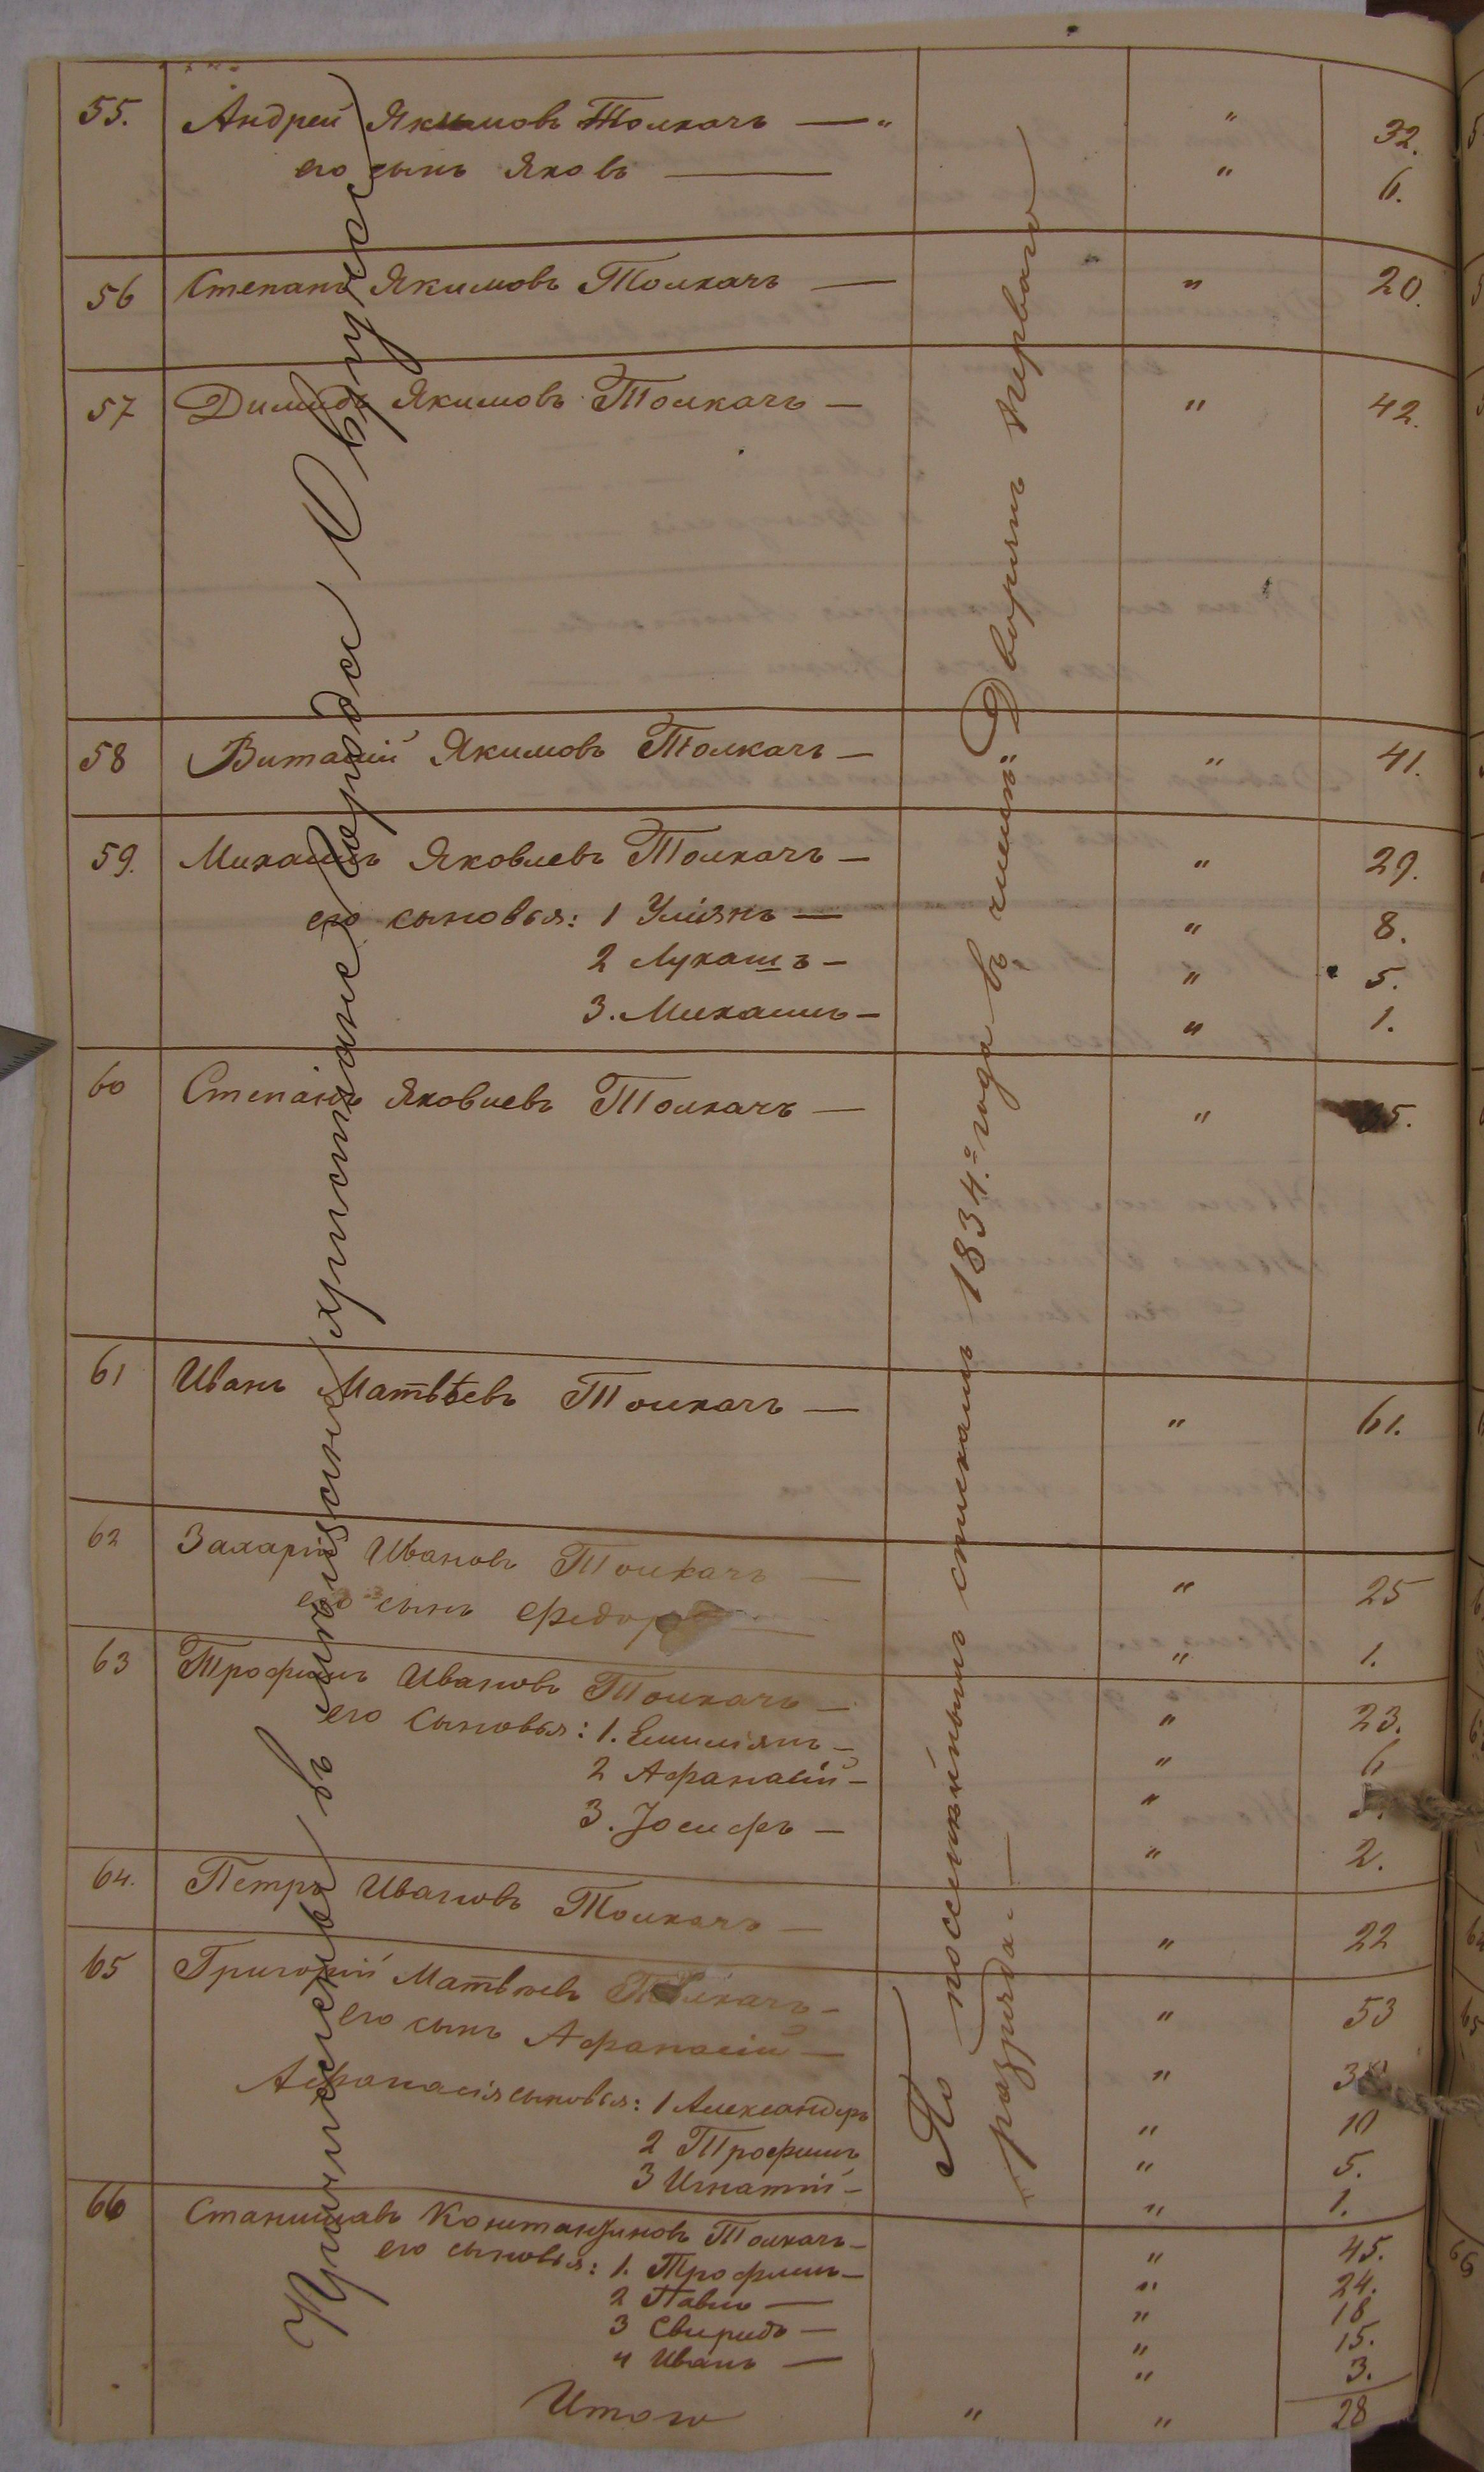 55. Андрей Якимовъ Толкачъ — " " 32.
его сынъ Яковъ — " 6.
56 Степанъ Якимовъ Толкачъ — " 20.
57 Якимовъ Толкачъ — " 42.
58 Виталий Якимовъ Толкачъ — " 41.
59. Михаилъ Яковлевъ Толкачъ — " 29.
его сыновья: 1 Улиянъ — " 8.
2 Лукашъ — " 5.
3. Михаилъ — " 1.
60 Степанъ Яковлевъ Толкачъ — " 5.
61 Иванъ Матвѣевъ Толкачъ — " 61.
62 Захарій Ивановъ Толкачъ — " 25
его сынъ Федоръ — " 1.
63 Трофимъ Ивановъ Толкачъ — " 23.
его сыновья: 1. Емилиянъ — " 6
2 Афанасій — "
3. Іосифъ — " 2.
64. Петръ Ивановъ Толкачъ — " 22
65 Григорій Матвѣевъ Толкачъ — " 53
его сынъ Афанасій — "
Афанасія сыновья: 1 Александръ " 10
2 Трофимъ " 5.
3 Игнатій — " 1.
66 Станиславъ Константиновъ Толкачъ — " 45.
его сыновья: 1. Трофимъ — " 24.
2 Павло — " 18
3 Свиридъ — " 15.
4 Иванъ — " 3.
Итого " " 28
Причислены въ мѣщане христіане города Овруча
По посемейнымъ спискамъ 1834.го года въ числѣ Дворянъ перваго
разряда. —